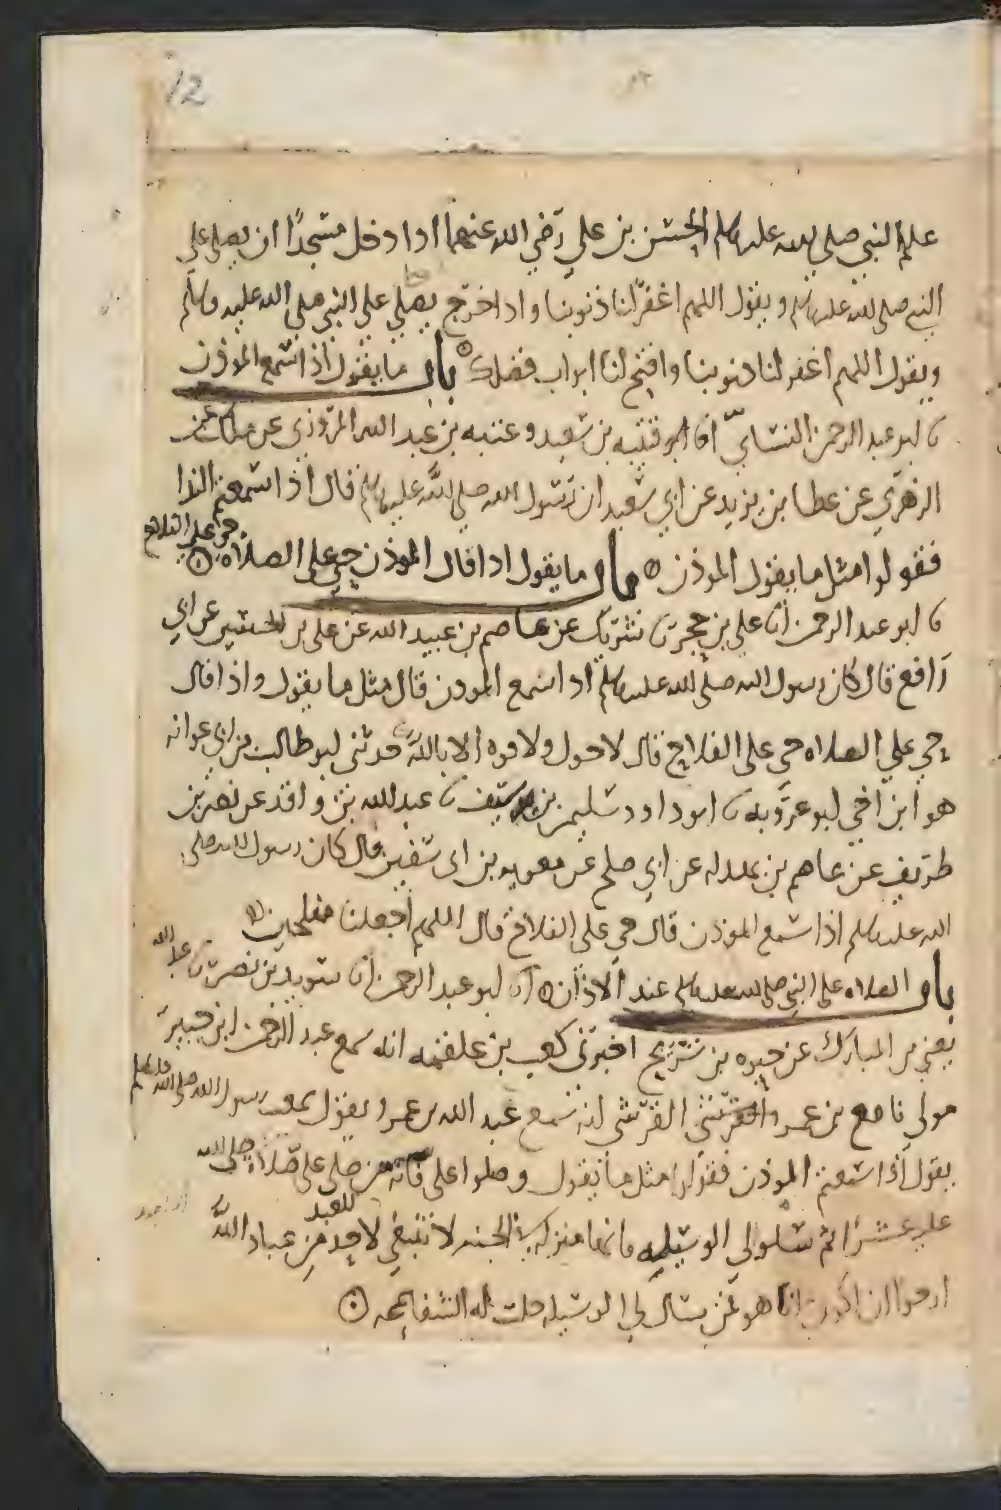 12
علم النبي صلى الله عليه وسلم الحسن بن علي رضي الله عنهما اذا دخل مسجدا ان يصلي على
النبي صلى الله عليه وسلم ويقول اللهم اغفر لنا ذنوبنا واذا خرج يصلي على النبي صلى الله عليه وسلم
ويقول اللهم اغفر لنا ذنوبنا وافتح لنا ابواب فضلك باب ما يقول اذا سمع الموذن
ابو عبد الرحمن النسائي انا قتيبه بن سعيد وعتبه بن عبد الله المروزي عن مالك عن
الزهري عن عطا بن يزيد عن ابي سعيد ان رسول الله صلى الله عليه وسلم قال اذا سمعتم الندا
فقولوا مثل ما يقول الموذن باب ما يقول اذا قال الموذن حي على الصلاه حي على الفلاح
ابو عبد الرحمن انا علي بن حجر نا شريك عن عاصم بن عبيد الله عن علي بن الحسين عن ابي
رافع قال كان رسول الله صلى الله عليه وسلم اذا سمع الموذن قال مثل ما يقول واذا قال
حي على الصلاه حي على الفلاح قال لا حول ولا قوه الا بالله حدثني ابو طالب بن ابي عوانه
هو ابن اخي ابو عروبه نا ابو داود سليمن بن سيف نا عبد الله بن واقد عن نصر بن
طريف عن عاصم بن بهدله عن ابي صلح عن معويه بن ابي سفين قال كان رسول الله صلى
الله عليه وسلم اذا سمع الموذن قال حي على الفلاح قال اللهم اجعلنا مفلحين
باب الصلاه على النبي صلى الله عليه وسلم عند الاذان انا ابو عبد الرحمن انا سويد بن نصر نا عبد الله
يعني بن المبارك عن حيوه بن شريح اخبرني كعب بن علقمه انه سمع عبد الرحمن ابن جبير
مولى نافع بن عمرو القرشي انه سمع عبد الله بن عمرو يقول سمعت رسول الله صلى الله عليه وسلم
يقول اذا سمعتم الموذن فقولوا مثل ما يقول وصلوا علي فانه من صلى علي صلاه صلى الله
عليه عشرا ثم سلوا لي الوسيله فانها منزله في الجنه لا تنبغي لاحد للعبد من عباد الله
ارجوا ان اكون انا هو فمن سال لي الوسيله حلت له الشفاعه